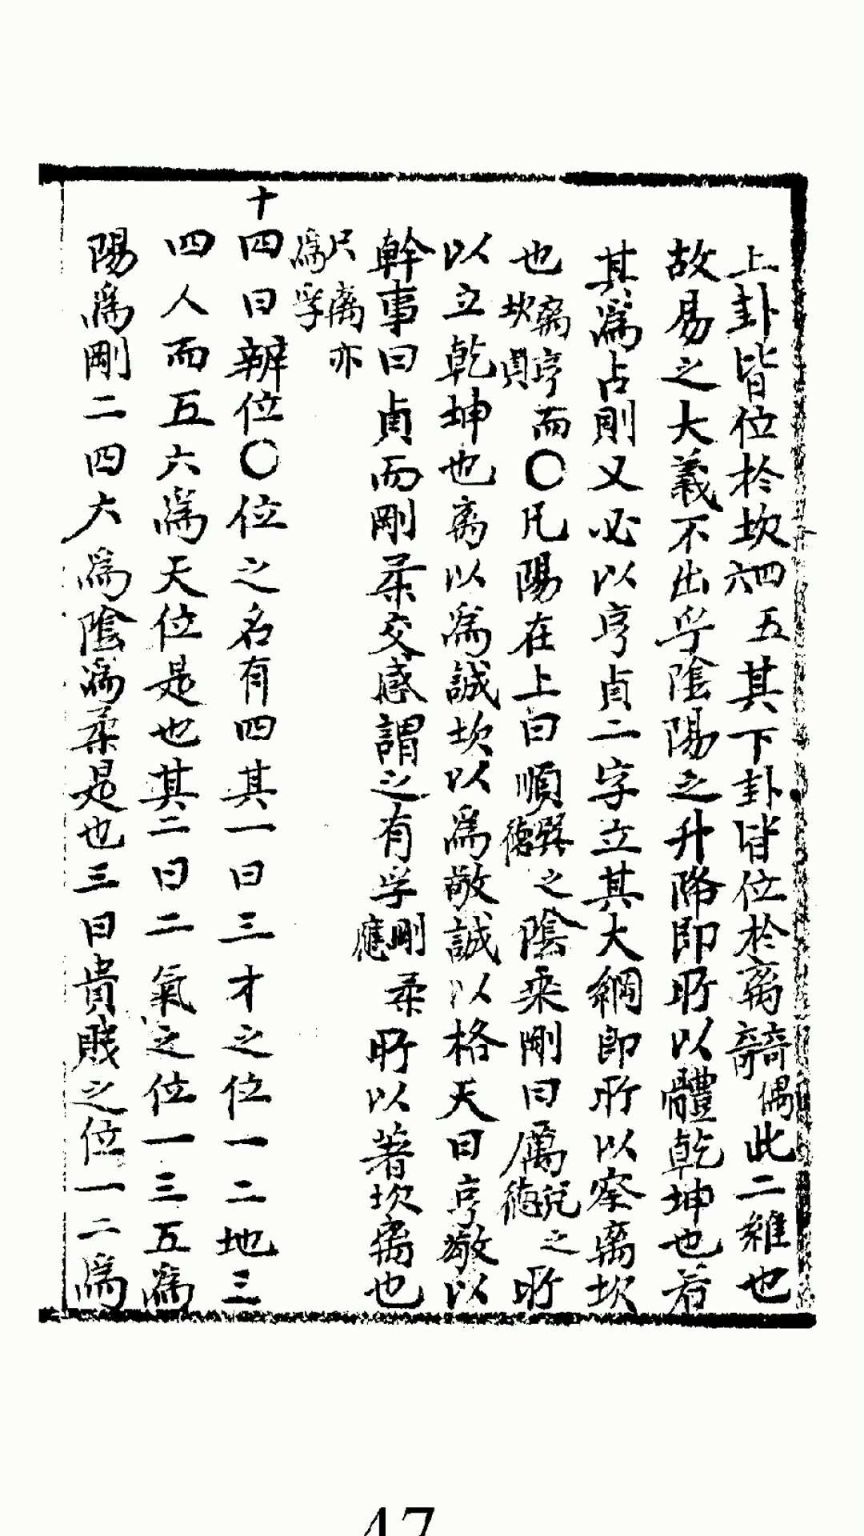 上卦皆位於坎四六五其下卦皆位於离奇偶此二雜也
故易之大義不出乎陰陽之升降即所以體乾坤也若
其爲占則又必以亨貞二字立其大綱即所以察离坎
也离亨坎貞而〇凡陽在上曰順巽之德陰乘剛曰厲兌之德所
以立乾坤也离以爲誠坎以爲敬誠以格天曰亨敬以
幹事曰貞而剛柔交感謂之有孚剛柔應所以著坎离也
只离亦
爲孚
十四曰辨位〇位之名有四其一曰三才之位一二地三
四人而五六爲天位是也其二曰二氣之位一三五爲
陽爲剛二四六爲陰爲柔是也三曰貴賤之位一二爲
47